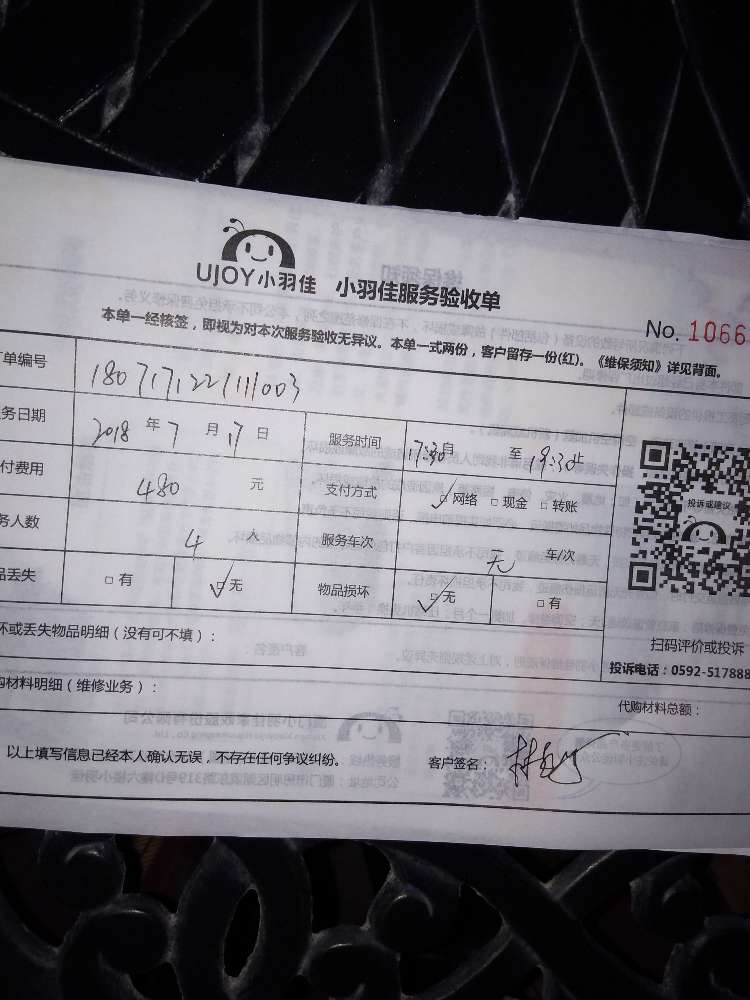 UJOY小羽佳 小羽佳服务验收单
No. 1066
本单一经核签，即视为对本次服务验收无异议。本单一式两份，客户留存一份(红)。《维保须知》详见背面。
单编号 180717122111003
务日期 2018 年 7 月 17 日 服务时间 17:30自 至 19:30止
付费用 480 元 支付方式 网络 现金 转账
务人数 4 人 服务车次 无 车/次
品丢失 有 无 物品损坏 无 有
投诉或建议
扫码评价或投诉
投诉电话：0592-517888
坏或丢失物品明细（没有可不填）：
购材料明细（维修业务）： 代购材料总额：
以上填写信息已经本人确认无误，不存在任何争议纠纷。 客户签名：